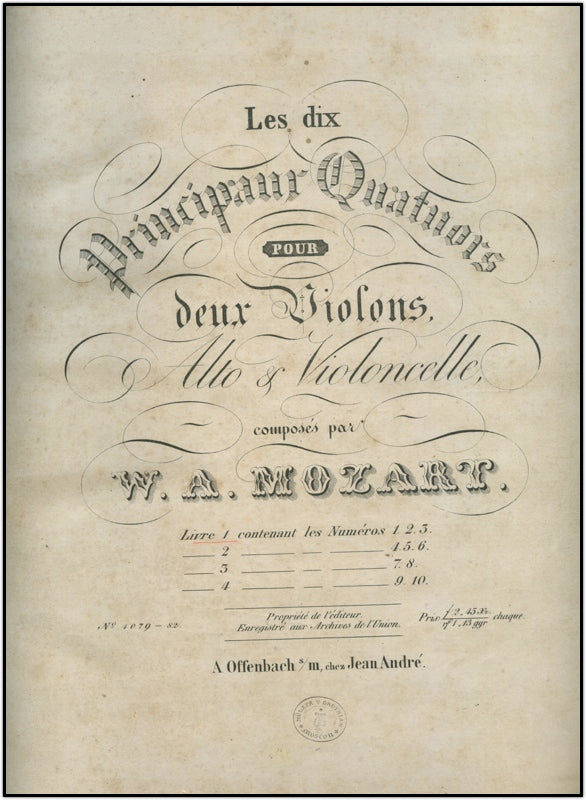 Les dix
Principaux Quatuors
POUR
deux Violons,
Alto & Violoncelle,
composés par
W. A. MOZART.
Livre 1 contenant les Numéros 1. 2. 3.
2 4. 5. 6.
3 7. 8.
4 9. 10.
Propriété de l'éditeur.
Enregistré aux Archives de l'Union.
Nº 4079 - 82.
Prix f 2. 45 Xr. chaque.
1. 15 ggr
A Offenbach s/m, chez Jean André.
MOSCOU